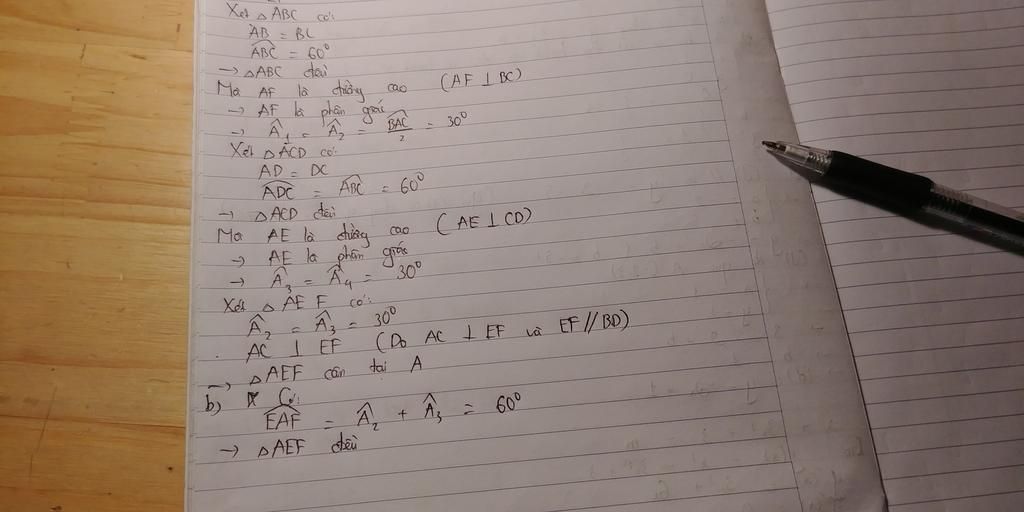 Xét △ABC có:
AB = BC
ABC = 60°
→ △ABC đều
Mà AF là đường cao (AF ⊥ BC)
→ AF là phân giác
→ Â₁ = Â₂ = BAC/2 = 30°
Xét △ACD có:
AD = DC
ADC = ABC = 60°
→ △ACD đều
Mà AE là đường cao (AE ⊥ CD)
→ AE là phân giác
→ Â₃ = Â₄ = 30°
Xét △AEF có:
Â₂ = Â₃ = 30°
AC ⊥ EF (Do AC ⊥ EF và EF // BD)
→ △AEF cân tại A
b) Có:
EAF = Â₂ + Â₃ = 60°
→ △AEF đều